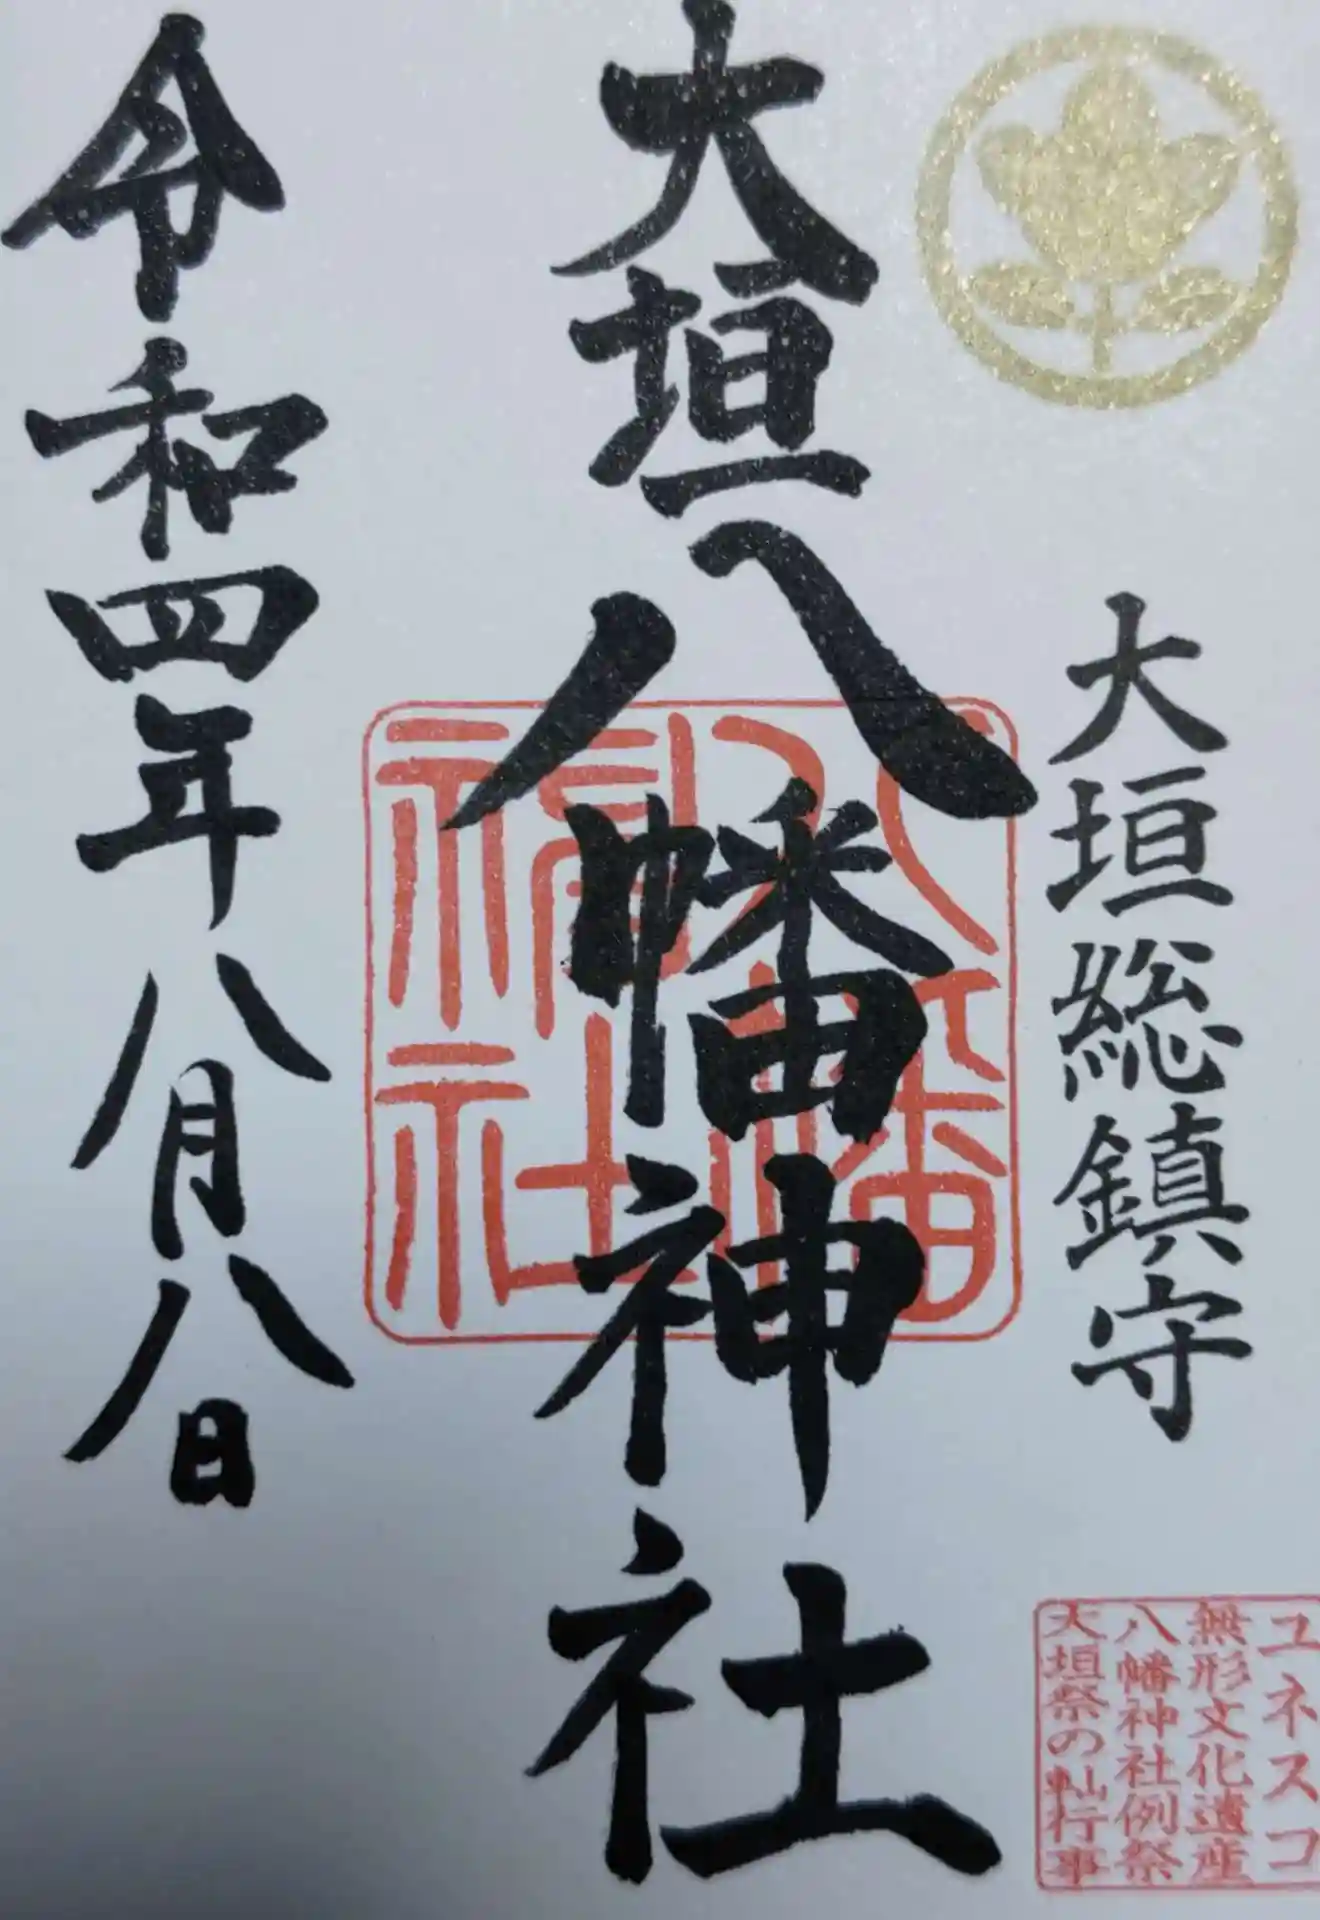 大垣総鎮守
大垣八幡神社
令和四年八月八日
八幡
福社
ユネスコ
無形文化遺産
八幡神社例祭
大垣祭の軕行事